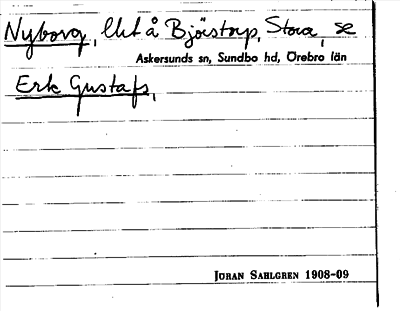 Nyborg, lht å Bjöstorp, Stora, se
Askersunds sn, Sundbo hd, Örebro län
Erk Gustafs,
JÖRAN SAHLGREN 1908-09